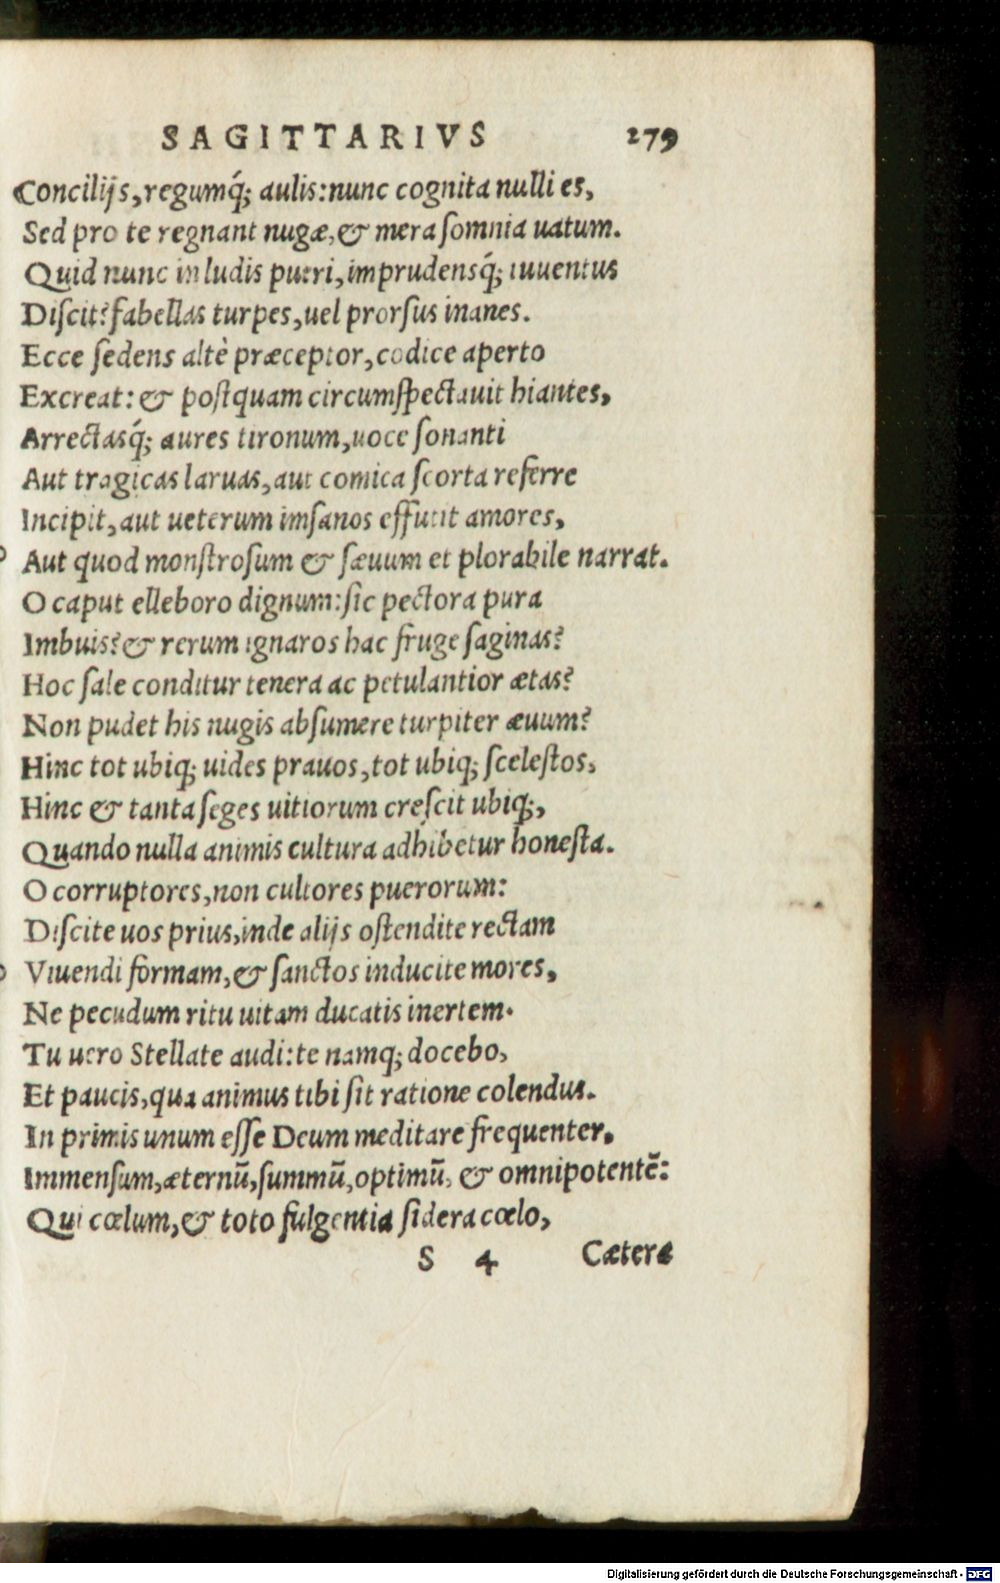 SAGITTARIVS 279
Concilijs, regumq́; aulis: nunc cognita nulli es,
Sed pro te regnant nugæ, & mera ſomnia uatum.
Quid nunc in ludis pueri, imprudensq́; iuuentus
Diſcit? fabellas turpes, uel prorſus inanes.
Ecce ſedens altè præceptor, codice aperto
Excreat: & poſtquam circumſpectauit hiantes,
Arrectasq́; aures tironum, uoce ſonanti
Aut tragicas laruas, aut comica ſcorta referre
Incipit, aut ueterum imſanos effutit amores,
Aut quod monſtroſum & ſæuum et plorabile narrat.
O caput elleboro dignum: ſic pectora pura
Imbuis? & rerum ignaros hac fruge ſaginas?
Hoc ſale conditur tenera ac petulantior ætas?
Non pudet his nugis abſumere turpiter æuum?
Hinc tot ubiq; uides prauos, tot ubiq; ſceleſtos,
Hinc & tanta ſeges uitiorum creſcit ubiq;,
Quando nulla animis cultura adhibetur honeſta.
O corruptores, non cultores puerorum:
Diſcite uos prius, inde alijs oſtendite rectam
Viuendi formam, & ſanctos inducite mores,
Ne pecudum ritu uitam ducatis inertem.
Tu uero Stellate audi: te namq; docebo,
Et paucis, qua animus tibi ſit ratione colendus.
In primis unum eſſe Deum meditare frequenter.
Immenſum, æternū, ſummū, optimū, & omnipotentē:
Qui cœlum, & toto fulgentia ſidera cœlo,
S 4 Cætera
Digitalisierung gefördert durch die Deutsche Forschungsgemeinschaft - DFG